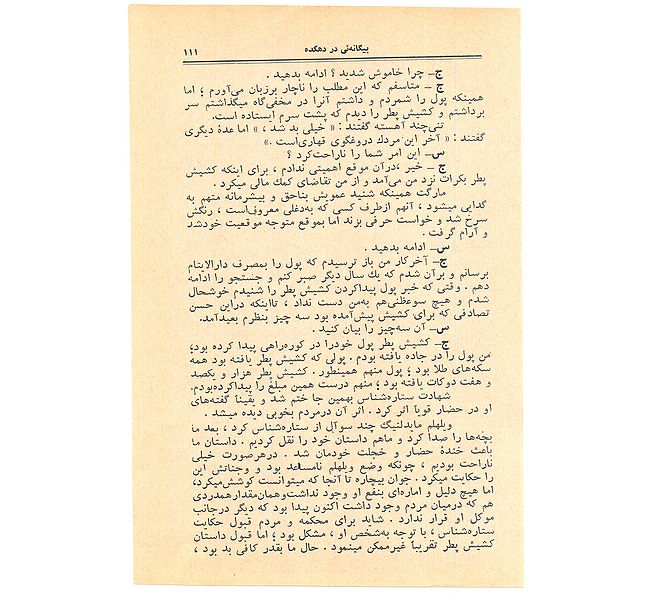 بیگانه‌ئی در دهکده
۱۱۱
ج‌ـ چرا خاموش شدید ؟ ادامه بدهید .
ج ـ متاسفم که این مطلب را ناچار برزبان می‌آورم ؛ اما
همینکه پول را شمردم و داشتم آنرا در مخفی‌گاه میگذاشتم سر
برداشتم و کشیش پطر را دیدم که پشت سرم ایستاده است.
تنی‌چند آهسته گفتند : « خیلی بد شد ، » اما عدهٔ دیگری
گفتند : « آخر این مردك دروغگوی قهاری‌است .»
س‌ـ این امر شما را ناراحت‌کرد ؟
ج ـ خیر ،درآن موقع اهمیتی ندادم ، برای اینکه کشیش
پطر بکرات نزد من می‌آمد و از من تقاضای کمك مالی میکرد .
مارگت همینکه شنید عمویش بناحق و بیشرمانه متهم به
گدایی میشود ، آنهم ازطرف کسی که به‌دغلی معروف‌است ، رنگش
سرخ شد و خواست حرفی بزند اما بموقع متوجه موقعیت خودشد
و آرام گرفت .
س‌ـ ادامه بدهید .
ج‌ـ آخرکار من باز ترسیدم که پول را بمصرف دارالایتام
برسانم و برآن شدم که یك سال دیگر صبر کنم و جستجو را ادامه
دهم . وقتی که خبر پول پیداکردن کشیش پطر را شنیدم خوشحال
شدم و هیچ سوءظنی‌هم به‌من دست نداد ، تااینکه دراین حسن
تصادفی که برای کشیش پیش‌آمده بود سه چیز بنظرم بعیدآمد.
س‌ـ آن سه‌چیز را بیان کنید .
ج‌ـ کشیش پطر پول خودرا در کوره‌راهی پیدا کرده بود؛
من پول را در جاده یافته بودم . پولی که کشیش پطر یافته بود همه
سکه‌های طلا بود ؛ پول منهم همینطور . کشیش پطر هزار و یکصد
و هفت دوکات یافته بود ؛ منهم درست همین مبلغ را پیداکرده‌بودم.
شهادت ستاره‌شناس بهمین جا ختم شد و یقیناً گفته‌های
او در حضار قویاً اثر کرد . اثر آن درمردم بخوبی دیده میشد .
ویلهلم مایدلنیگ چند سوآل از ستاره‌شناس کرد ، بعد ما
بچه‌ها را صدا کرد و ماهم داستان خود را نقل کردیم . داستان ما
باعث خندهٔ حضار و خجلت خودمان شد . درهرصورت خیلی
ناراحت بودیم ، چونکه وضع ویلهلم نامساعد بود و وجناتش این
را حکایت میکرد . جوان بیچاره تا آنجا که میتوانست کوشش‌میکرد،
اما هیچ دلیل و اماره‌ای بنفع او وجود نداشت‌وهمان‌مقدارهمدردی
هم که درمیان مردم وجود داشت اکنون پیدا بود که دیگر درجانب
موکل او قرار ندارد . شاید برای محکمه و مردم قبول حکایت
ستاره‌شناس ، با توجه به‌شخص او ، مشکل بود ؛ اما قبول داستان
کشیش پطر تقریباً غیرممکن مینمود . حال ما بقدر کافی بد بود ،